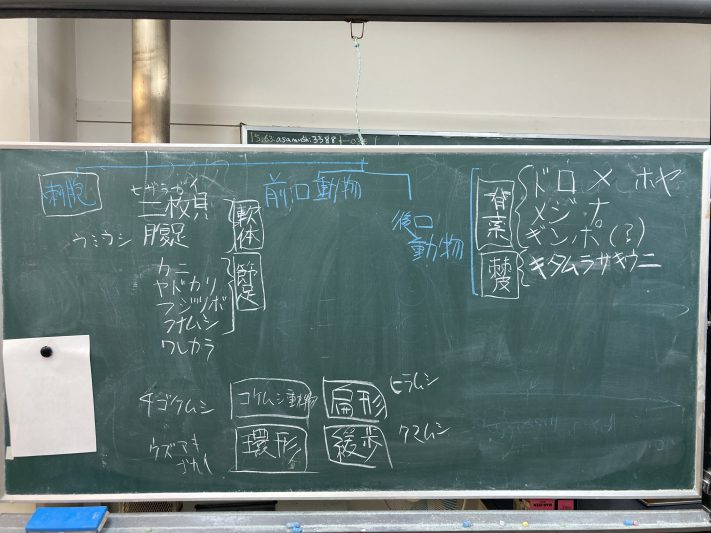 刺胞
前口動物
後口
動物
ヒザラガイ
二枚貝
腹足
ウミウシ
軟体
カニ
ヤドカリ
フジツボ
フナムシ
ワレカラ
節足
脊索
ドロメ ホヤ
メジナ
ギンポ(?)
棘皮
キタムラサキウニ
チゴケムシ
コケムシ動物
扁形
ヒラムシ
ウズマキ
ゴカイ
環形
緩歩
クマムシ